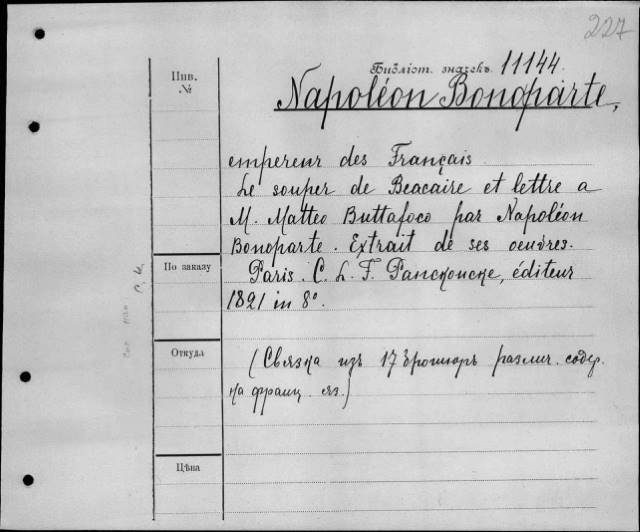 227
Библіот. значекъ 11144.
Инв.
№
Napoléon Bonoparte,
empereur des Français
Le souper de Beacaire et lettre a
M. Matteo Buttafoco par Napoléon
Bonoparte. Extrait de ses oeuvres.
По заказу
Paris. C. L. F. Panckoucke, éditeur
1821 in 8°.
Откуда
(Связка изъ 17 брошюръ различ. содер.
на франц. яз.)
Цѣна